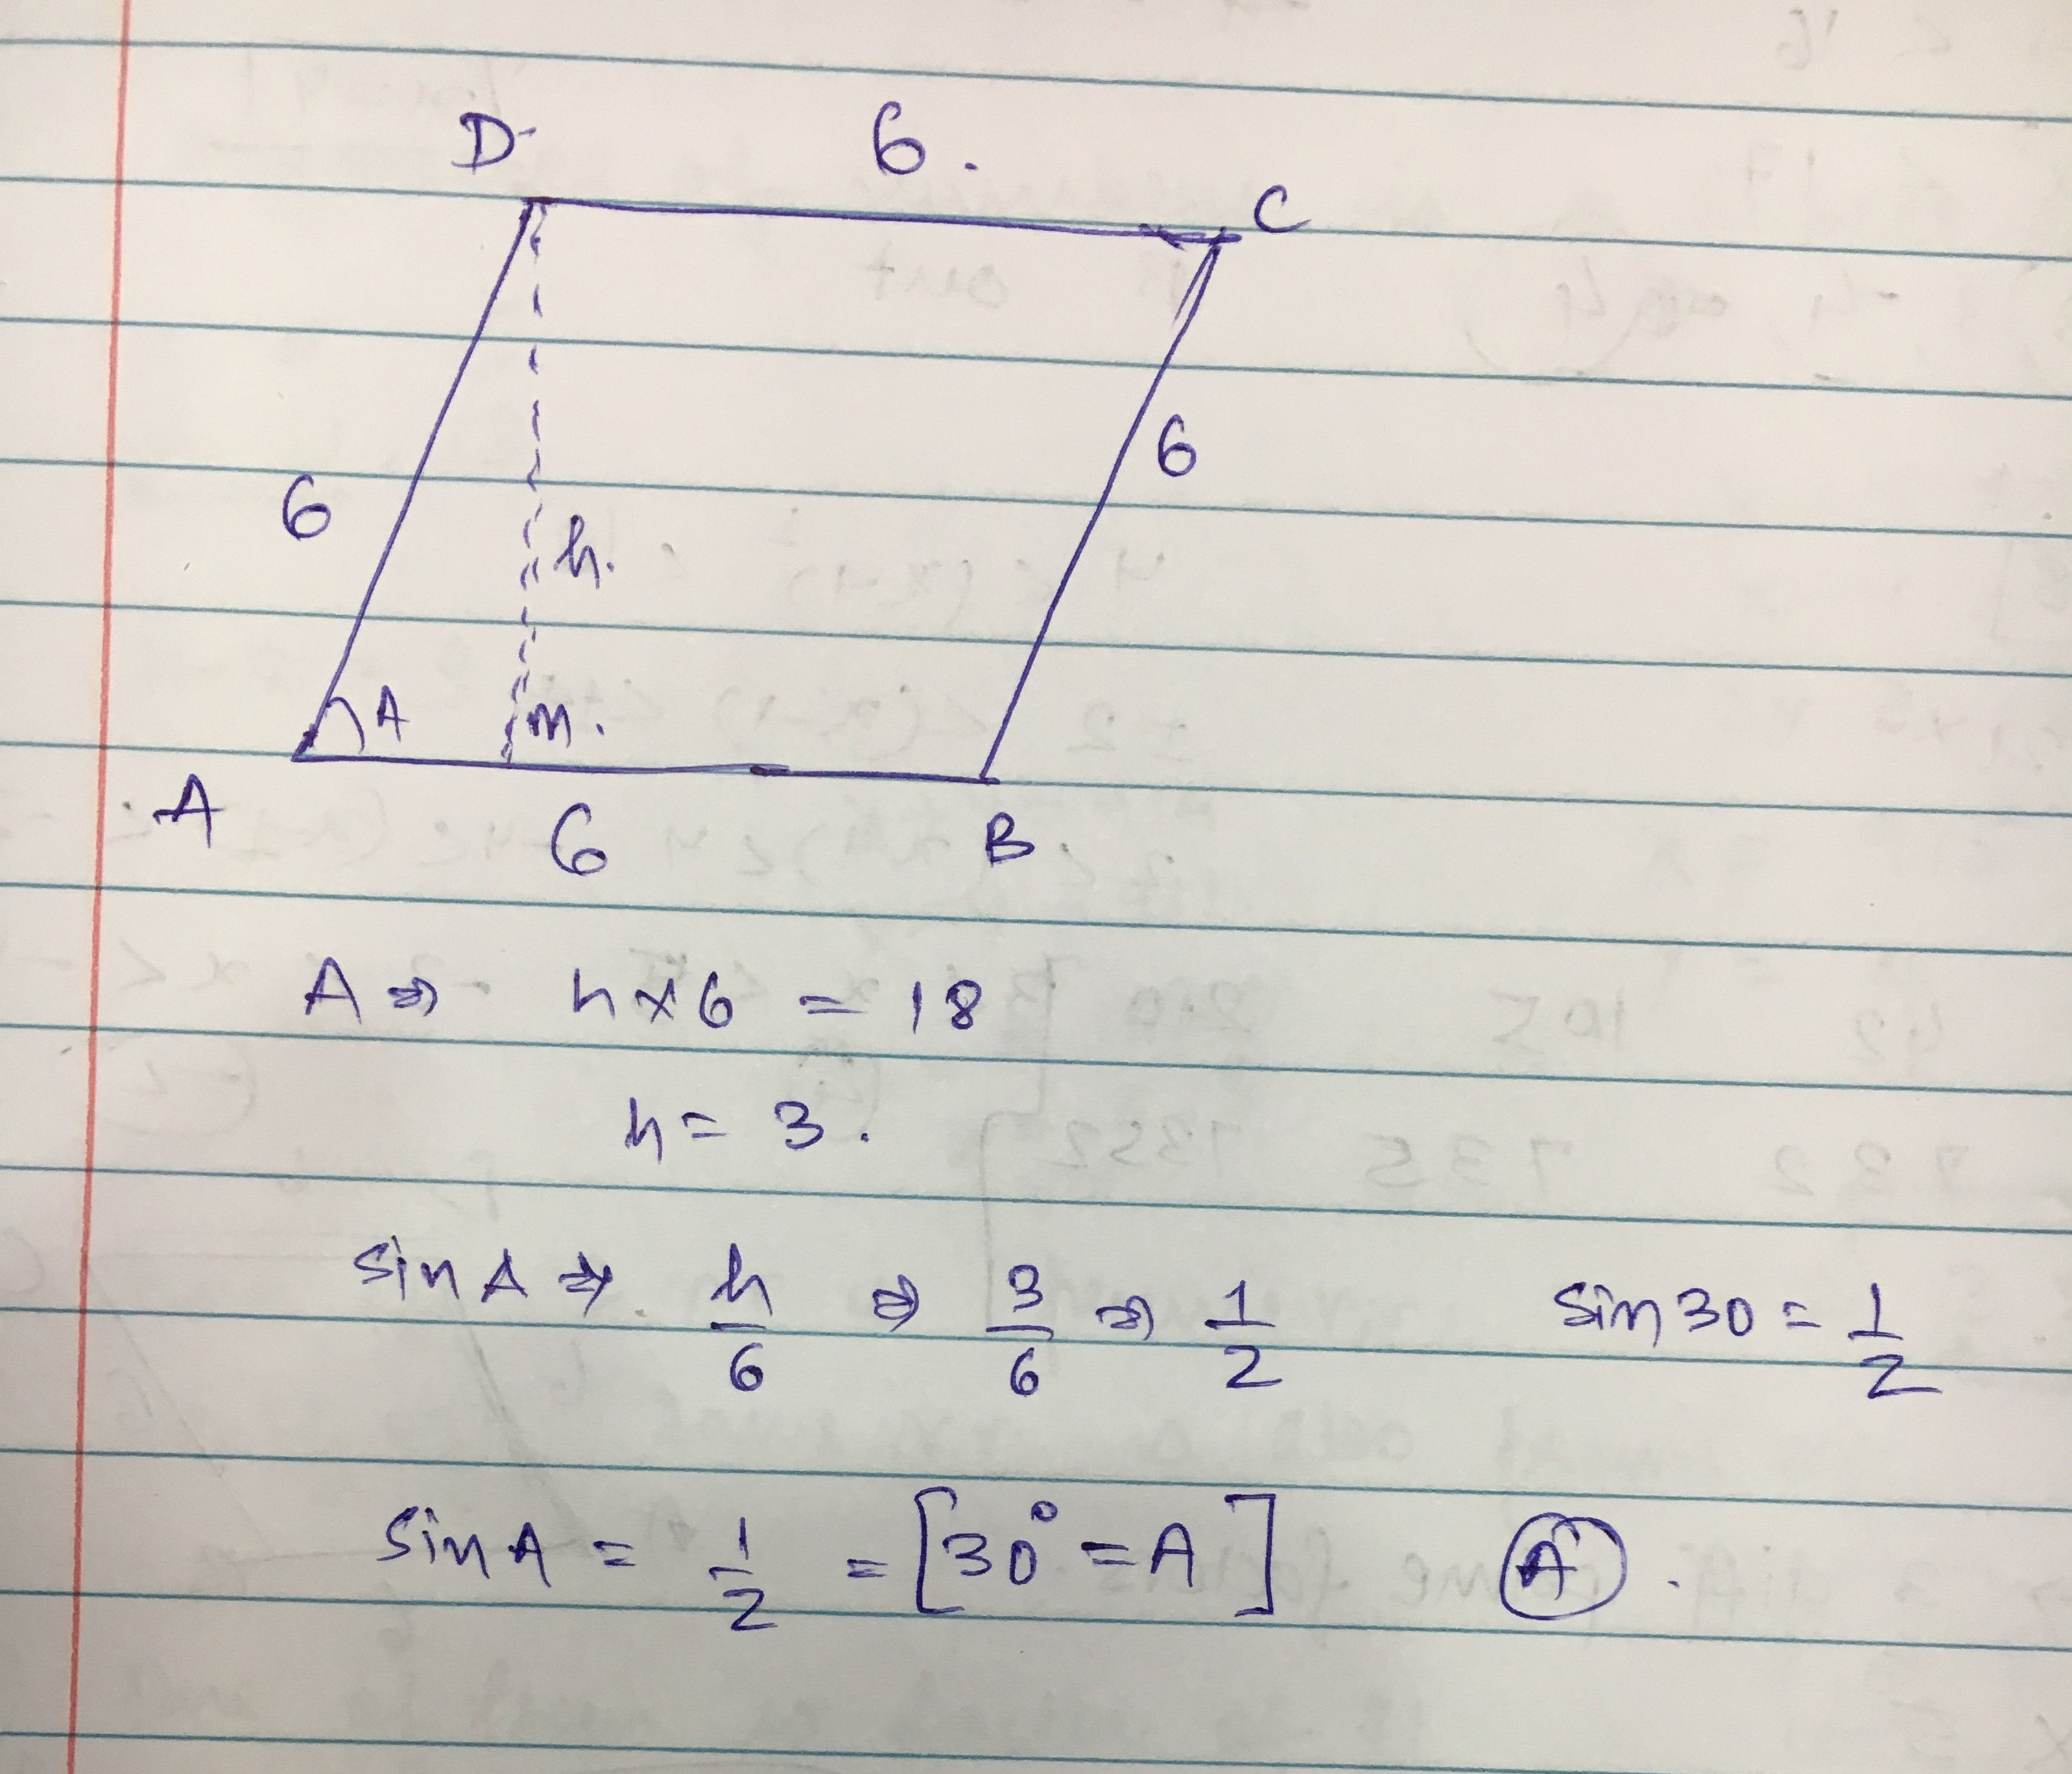 D 6.
C
6
6
h.
A m.
A 6 B.
A ⇒ h×6 = 18
h = 3.
sin A ⇒ h/6 ⇒ 3/6 ⇒ 1/2 sin 30 = 1/2
sin A = 1/2 = [30° = A] A.